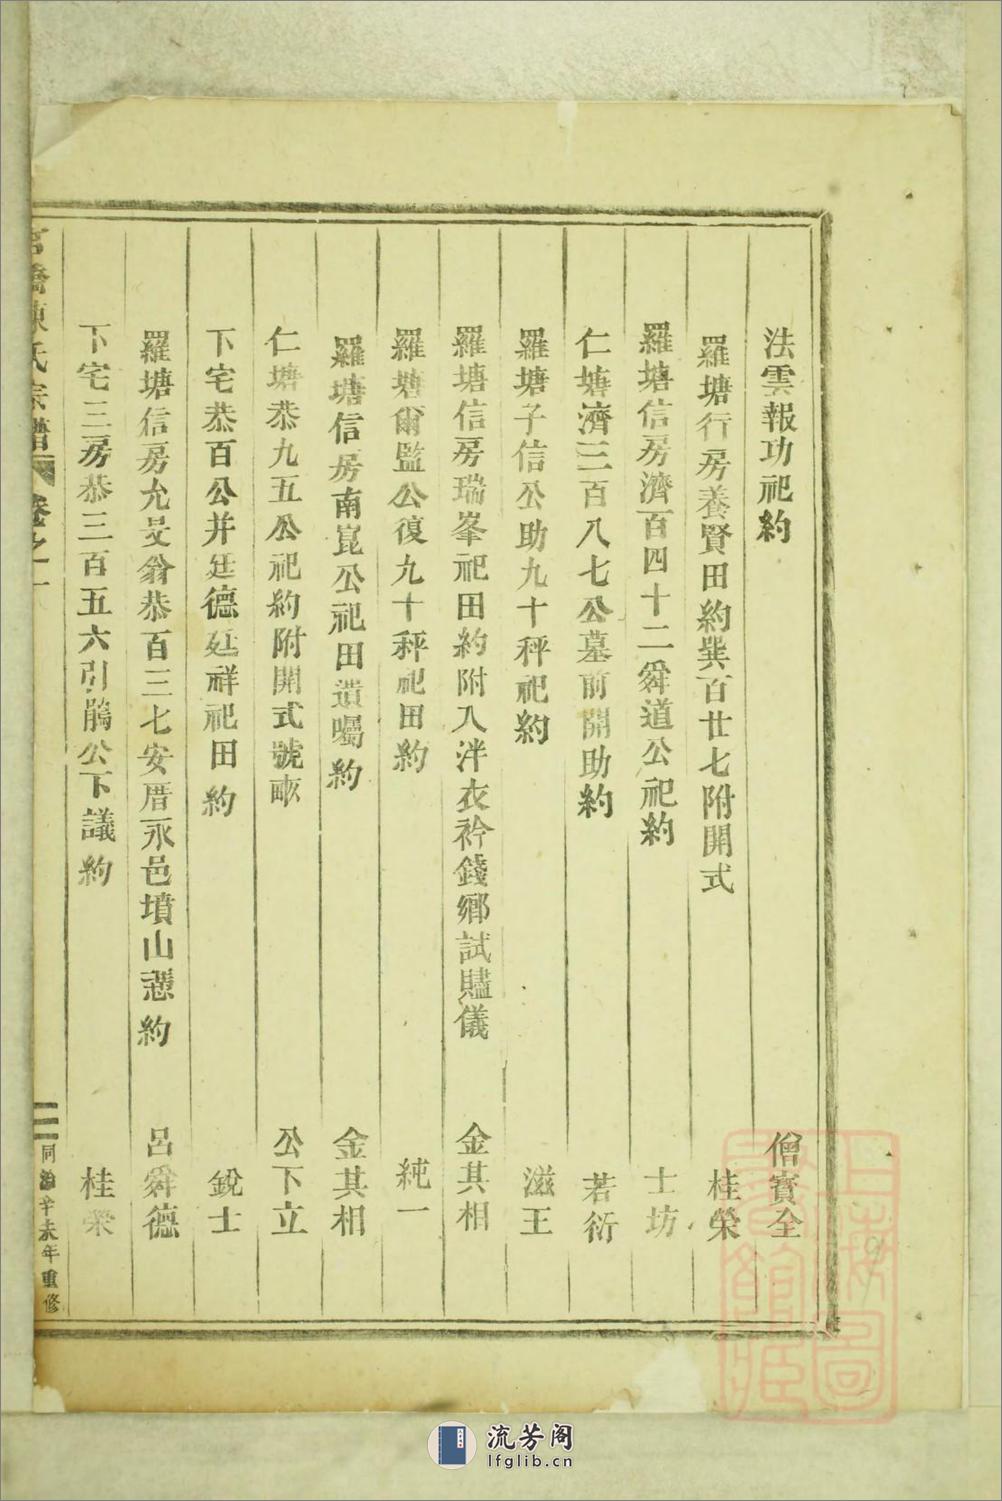 法雲報功祀約 僧寳全
羅塘行房養賢田約巽百廿七附開式 桂榮
羅塘信房濟百四十二舜道公祀約 士坊
仁塘濟三百八七公墓前開助約 若衍
羅塘子信公助九十秤祀約 滋王
羅塘信房瑞峯祀田約附入泮衣衿錢鄉試贐儀 金其相
羅塘爾監公復九十秤祀田約 純一
羅塘信房南崑公祀田遺囑約 金其相
仁塘恭九五公祀約附開式號畝 公下立
下宅恭百公并廷德廷祥祀田約 銳士
羅塘信房允旻翁恭百三七安厝永邑墳山約 呂舜德
下宅三房恭三百五六引鵑公下議約 桂榮
橋陳氏宗譜 卷之一 二 同治辛未年重修
上海圖書館藏
流芳阁
lfglib.cn